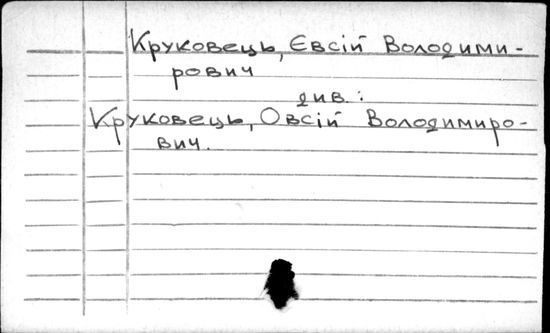 Круковець, Євсій Володими-
рович
див.:
Круковець, Овсій Володимиро-
вич.